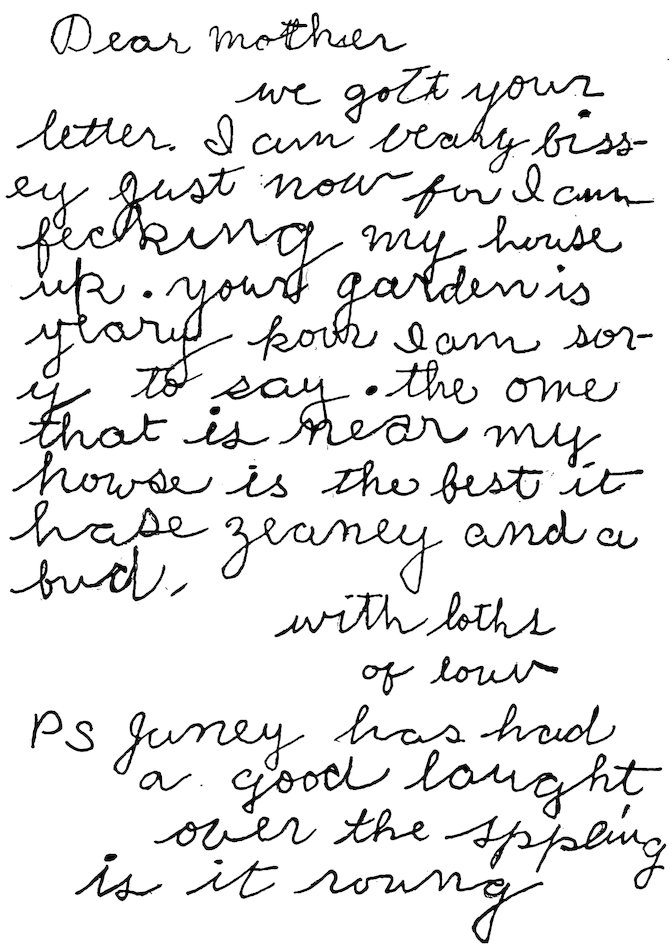 Dear mother
we gott your
letter. I am veary biss-
ey just now for I am
fecking my house
up. your garden is
veary poor I am sor-
y to say. the ome
that is near my
howse is the best it
hase zeaney and a
bud,
with loths
of louv
PS Juney has had
a good laught
over the sppling
is it roung